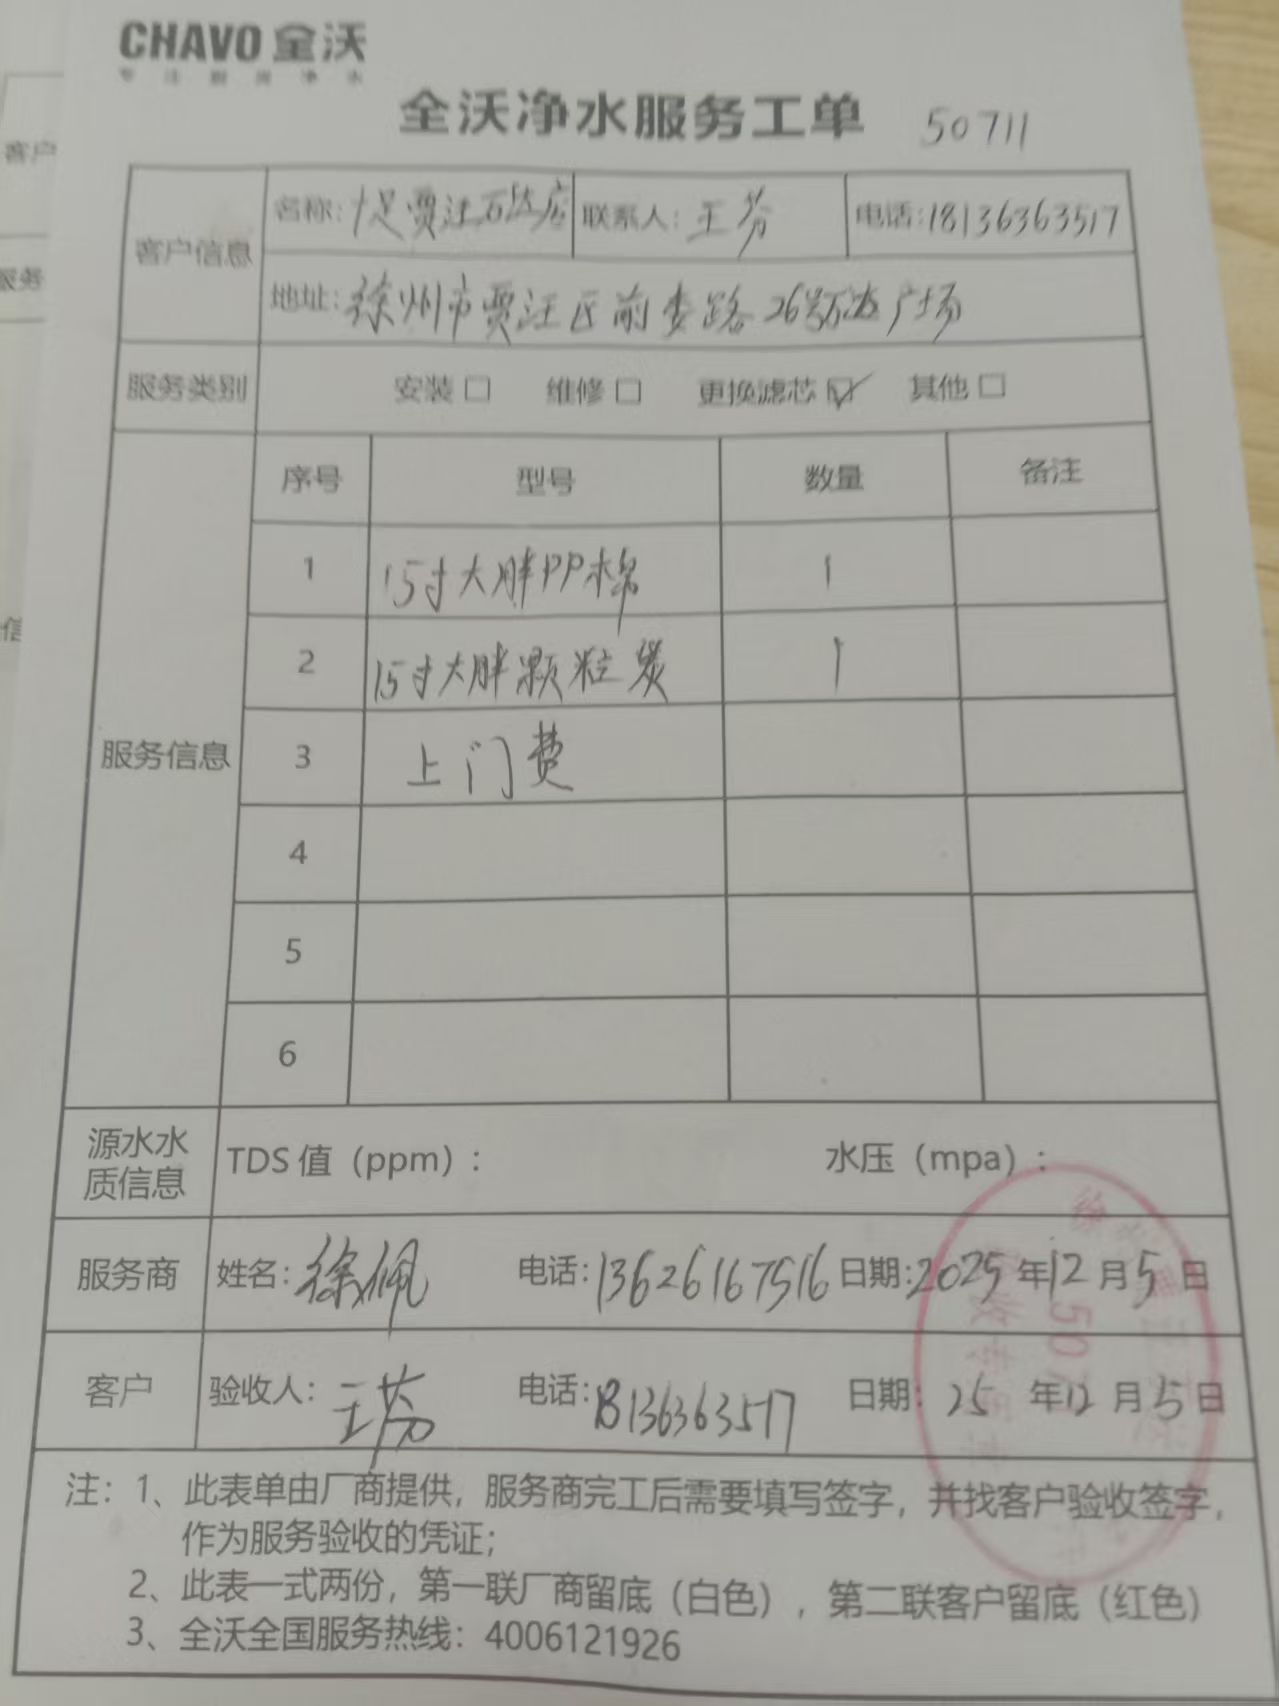 CHAVO 全沃
专注厨房净水
全沃净水服务工单 50711
客户信息
名称：十足贾汪万达店 联系人：王芳 电话：18136363517
地址：徐州市贾汪区前委路26号万达广场
服务类别 安装□ 维修□ 更换滤芯☑ 其他□
服务信息
序号 型号 数量 备注
1 15寸大胖PP棉 1
2 15寸大胖颗粒炭 1
3 上门费
4
5
6
源水水质信息 TDS 值（ppm）： 水压（mpa）：
服务商 姓名：徐佩 电话：13626167516 日期：2025年12月5日
客户 验收人：王芳 电话：18136363517 日期：25年12月5日
5071
注：1、此表单由厂商提供，服务商完工后需要填写签字，并找客户验收签字，
作为服务验收的凭证；
2、此表一式两份，第一联厂商留底（白色），第二联客户留底（红色）
3、全沃全国服务热线：4006121926
客户
服务
信